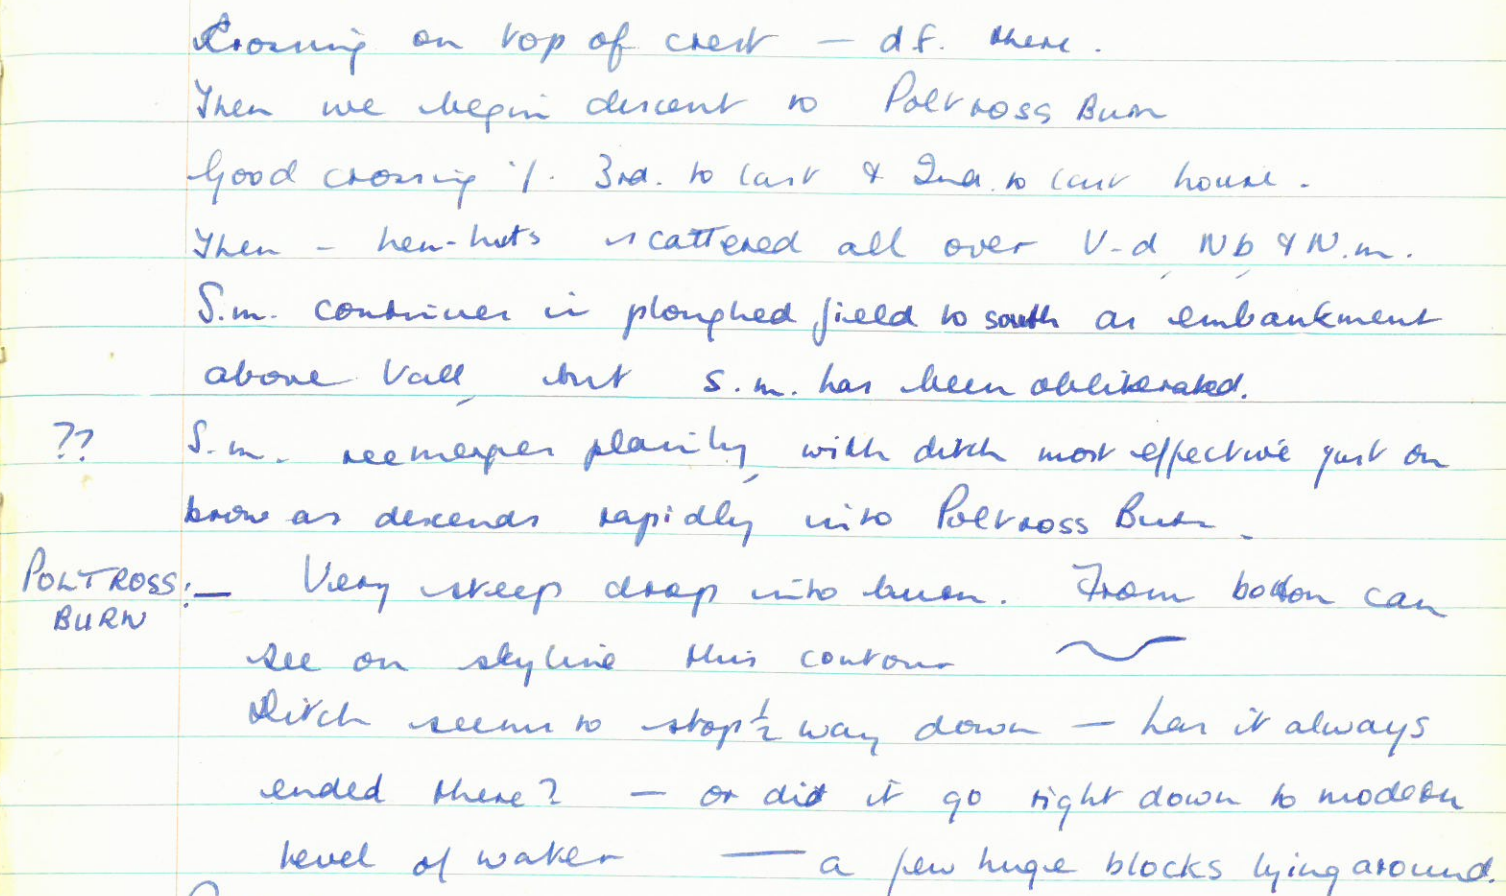 Crossing on top of crest – d.f. there.
Then we begin descent to Poltross Burn
Good crossing 1/. 3rd. to last & 2nd. to last house.
Then – hen-huts scattered all over V-d, Nb, & N.m.
S.m. continues in ploughed field to south as embankment
above Vall, but s.m. has been obliterated.
?? S.m. reemerges plainly, with ditch most effective just on
brow as descends rapidly into Poltross Burn.
POLTROSS BURN :— Very steep drop into burn. From bottom can
see on skyline this contour
Ditch seems to stop ½ way down — has it always
ended there? — or did it go right down to modern
level of water — a few huge blocks lying around.